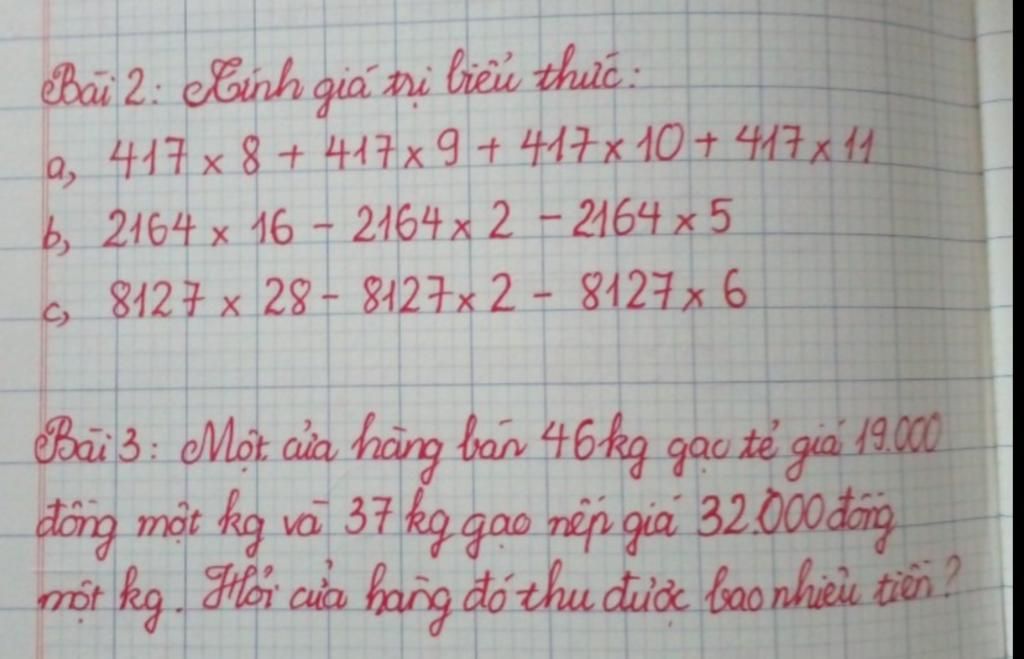 Bài 2: Tính giá trị biểu thức:
a, 417 × 8 + 417 × 9 + 417 × 10 + 417 × 11
b, 2164 × 16 - 2164 × 2 - 2164 × 5
c, 8127 × 28 - 8127 × 2 - 8127 × 6
Bài 3: Một cửa hàng bán 46kg gạo tẻ giá 19.000
đồng một kg và 37kg gạo nếp giá 32.000 đồng
một kg. Hỏi cửa hàng đó thu được bao nhiêu tiền?